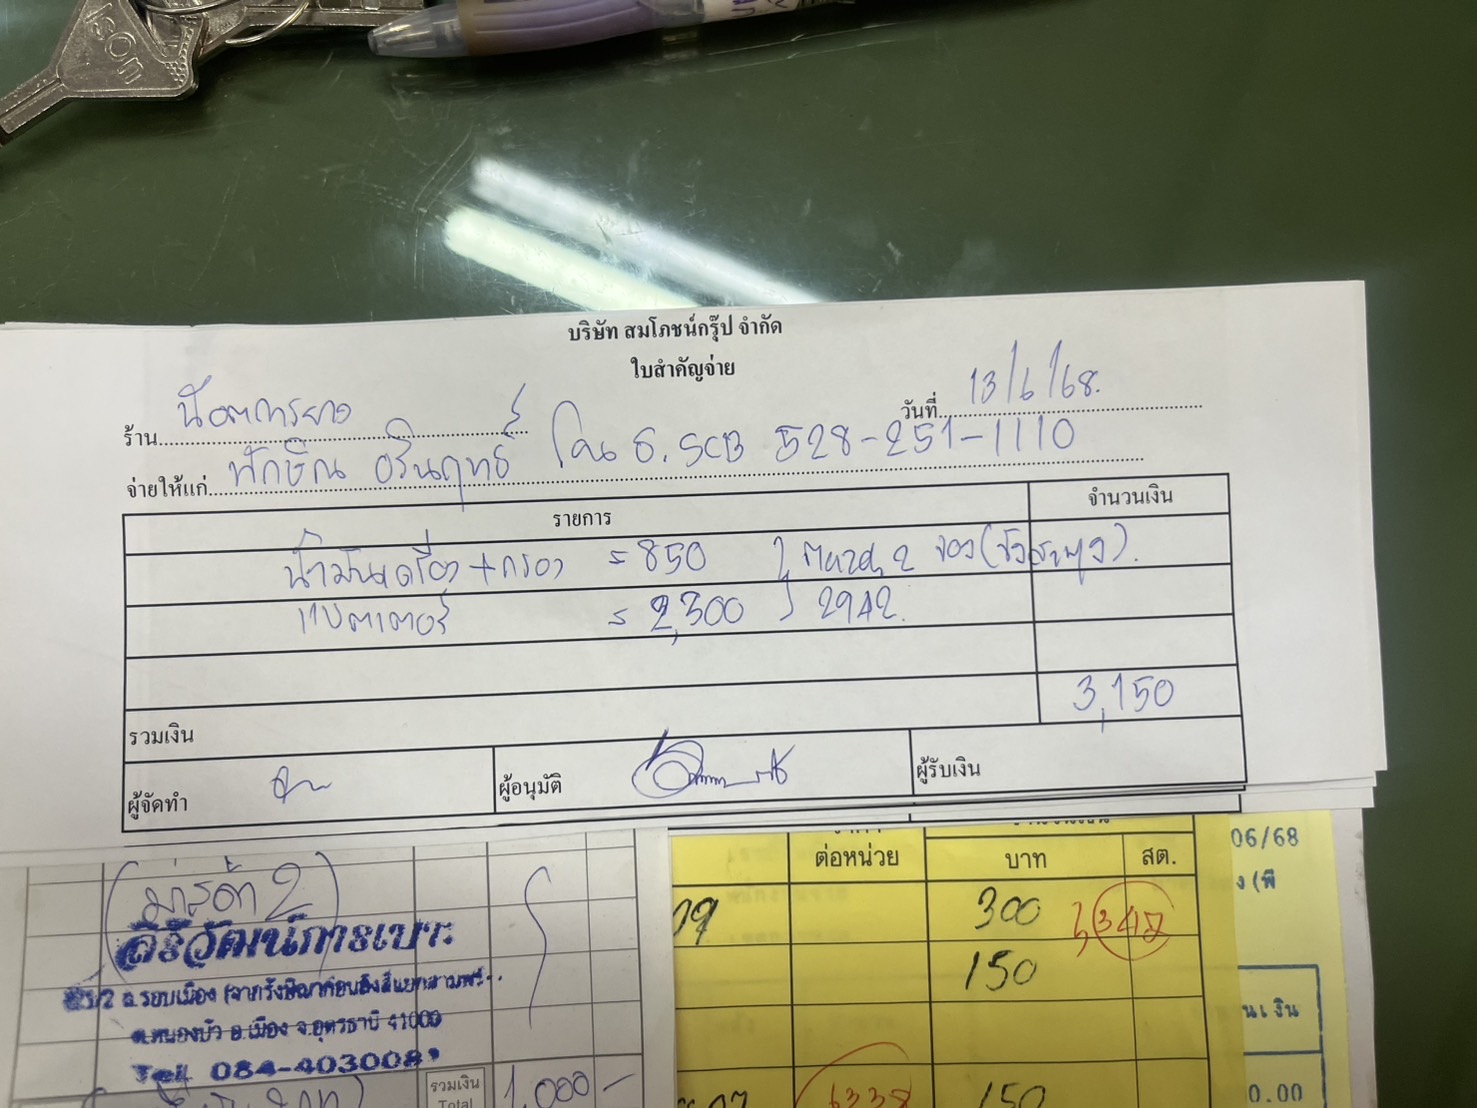 บริษัท สมโภชน์กรุ๊ป จำกัด
ใบสำคัญจ่าย
ร้าน น๊อตการยาง วันที่ 13/6/68.
จ่ายให้แก่ พักษิณ อรินฤทธิ์ โอน ธ. SCB 528-251-1110
รายการ จำนวนเงิน
น้ำมันเครื่อง + กรอง = 850
แบตเตอรี่ = 2,300 2942.
3,150
รวมเงิน
ผู้จัดทำ ผู้อนุมัติ ผู้รับเงิน
(มาสด้า 2)
ศิริวัฒน์การเบาะ
ต.หนองบัว อ.เมือง จ.อุดรธานี 41000
Tel. 084-4030081
รวมเงิน
Total 1,000-
ต่อหน่วย บาท สต.
300
150
6338 150
06/68
ง (พี
นเงิน
0.00